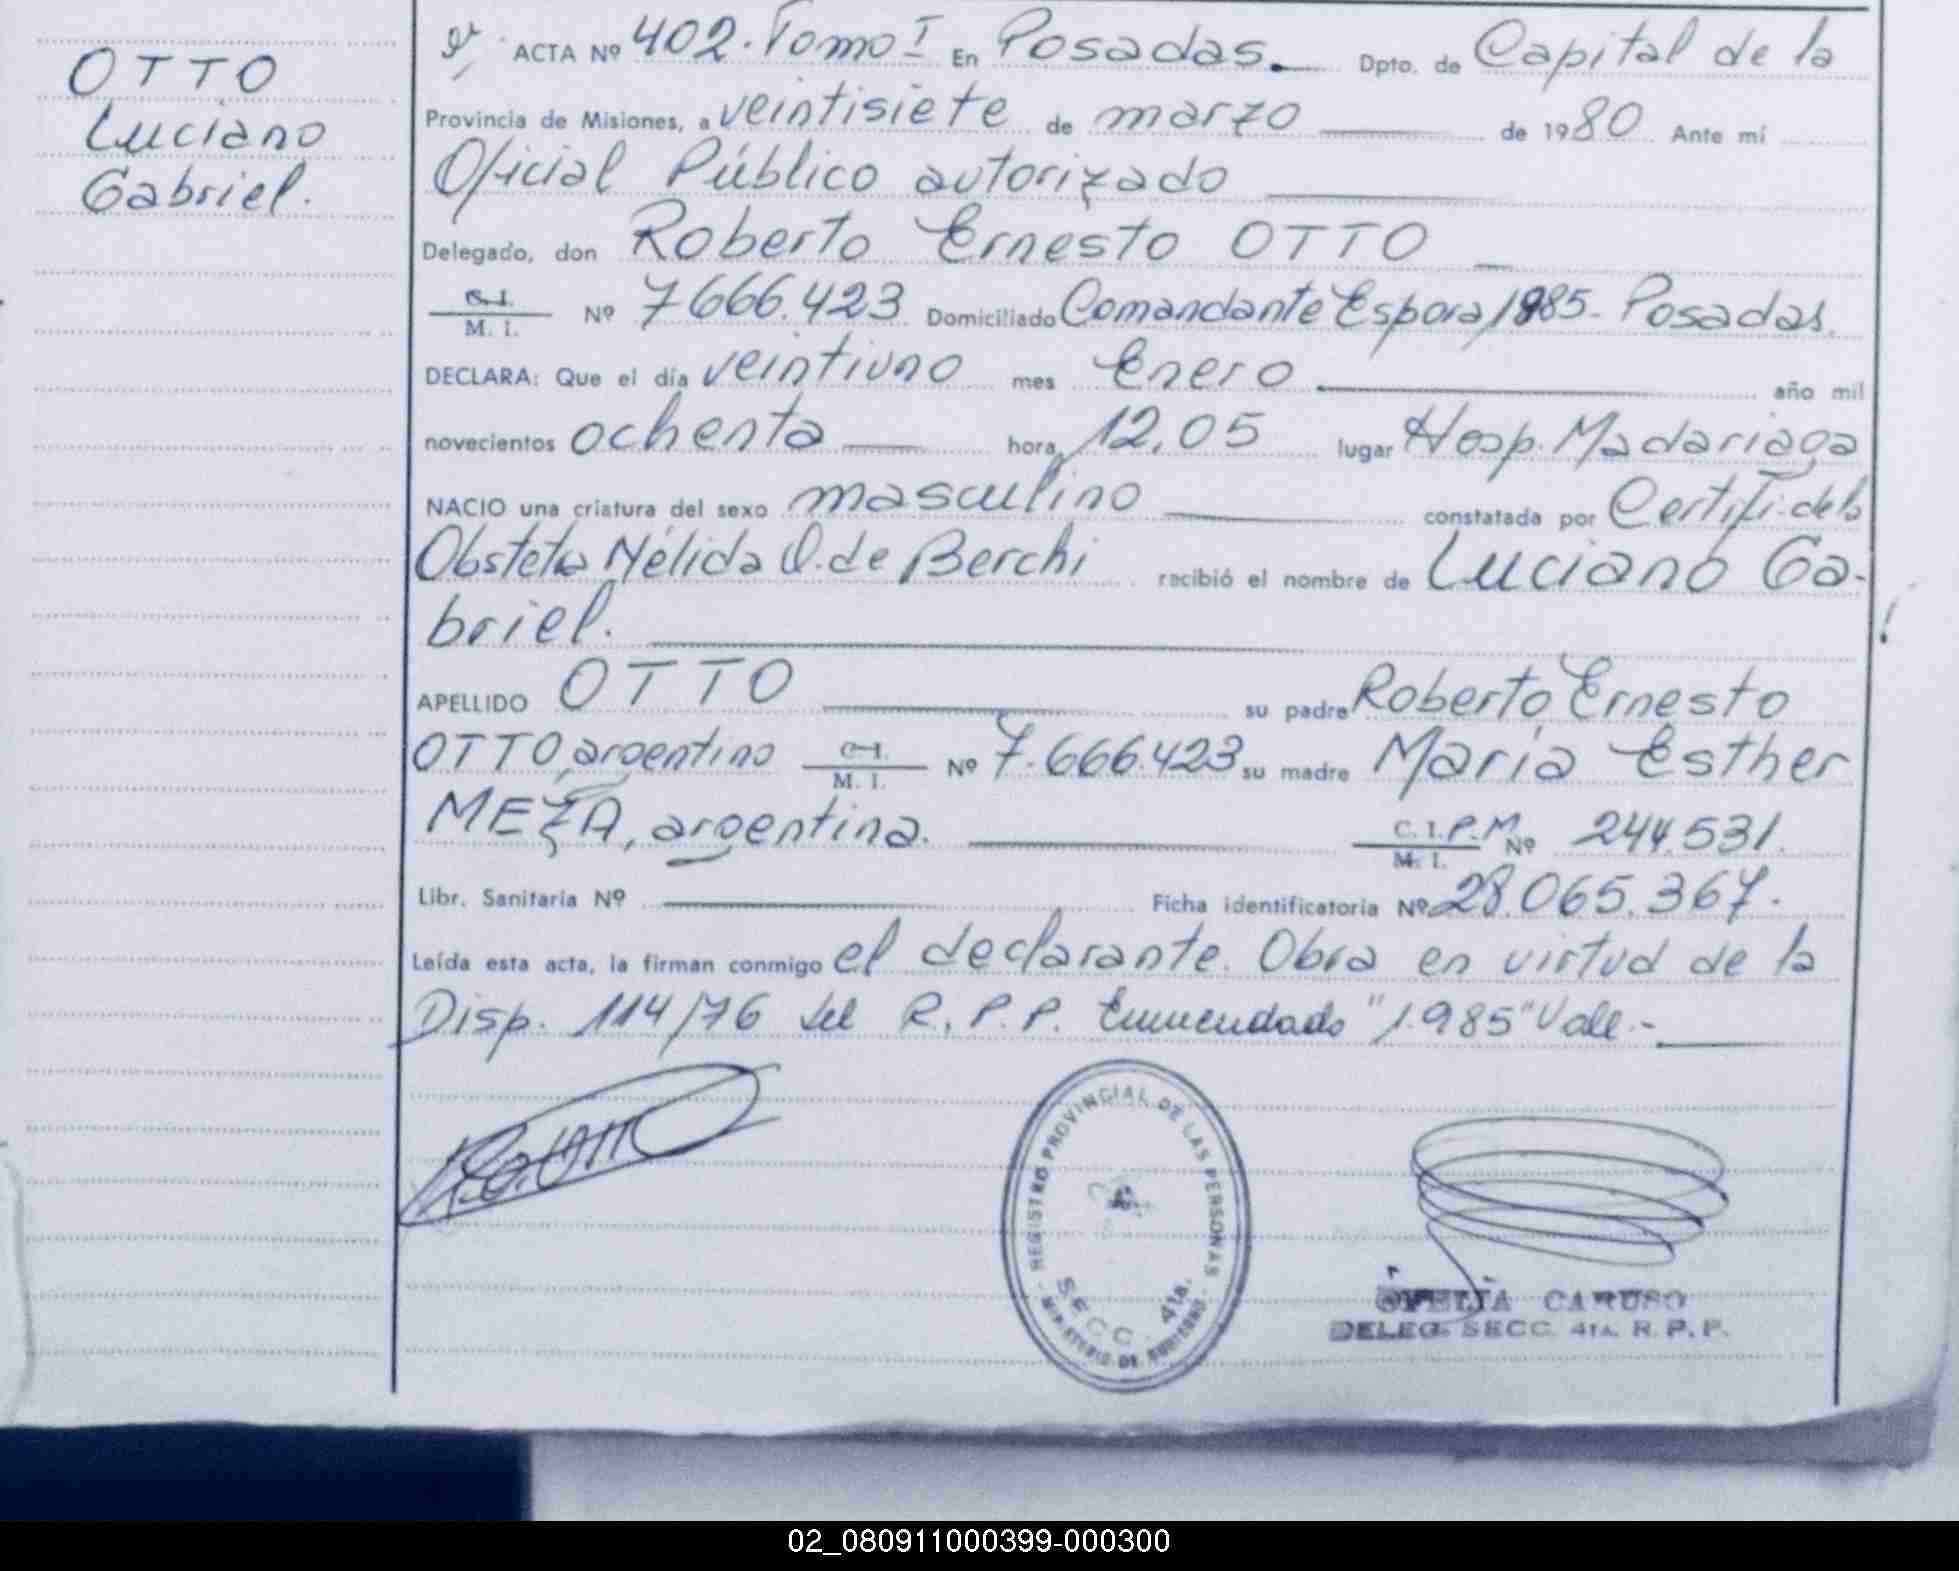 OTTO
Luciano
Gabriel.
ACTA Nº 402. Tomo I En Posadas. Dpto. de Capital de la
Provincia de Misiones, a veintisiete de marzo de 1980 Ante mí
Oficial Público autorizado
Delegado, don Roberto Ernesto OTTO
C.I.
M. I. Nº 7666.423 Domiciliado Comandante Espora, 1985. Posadas.
DECLARA: Que el día veintiuno mes Enero año mil
novecientos ochenta hora, 12,05 lugar Hosp. Madariaga
NACIO una criatura del sexo masculino constatada por Certifi. de la
Obsteta Nélida O. de Berchi recibió el nombre de Luciano Ga-
briel.
APELLIDO OTTO su padre Roberto Ernesto
OTTO, argentino C.I. M. I. Nº 7.666.423 su madre María Esther
MEZA, argentina. C. I. P. M. M. I. Nº 244.531.
Libr. Sanitaria Nº Ficha identificatoria Nº 28.065.367.
Leída esta acta, la firman conmigo el declarante. Obra en virtud de la
Disp. 114/76 del R. P. P. Enmendado "1.985" Vale.-
REGISTRO PROVINCIAL DE LAS PERSONAS
SECC. 4ta.
MINISTERIO DE GOBIERNO
OFELIA CARUSO
DELEG. SECC. 4ta. R. P. P.
02_080911000399-000300